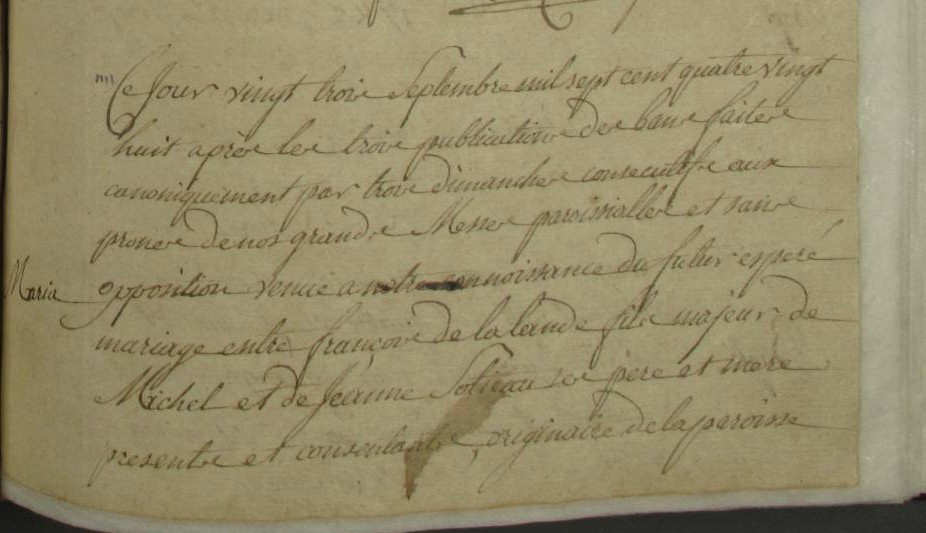 Ce Jour vingt trois Septembre mil sept cent quatre vingt
huit après les trois publications des bans faites
canoniquement par trois dimanches consecutifs aux
prones de nos grandes Messes paroissialles et sans
Maria opposition venue a notre connoissance du futur esperé
mariage entre françois de la lande fils majeur de
Michel et de Jeanne Solieau ses pere et mere
presents et consentants, originaire de la paroisse